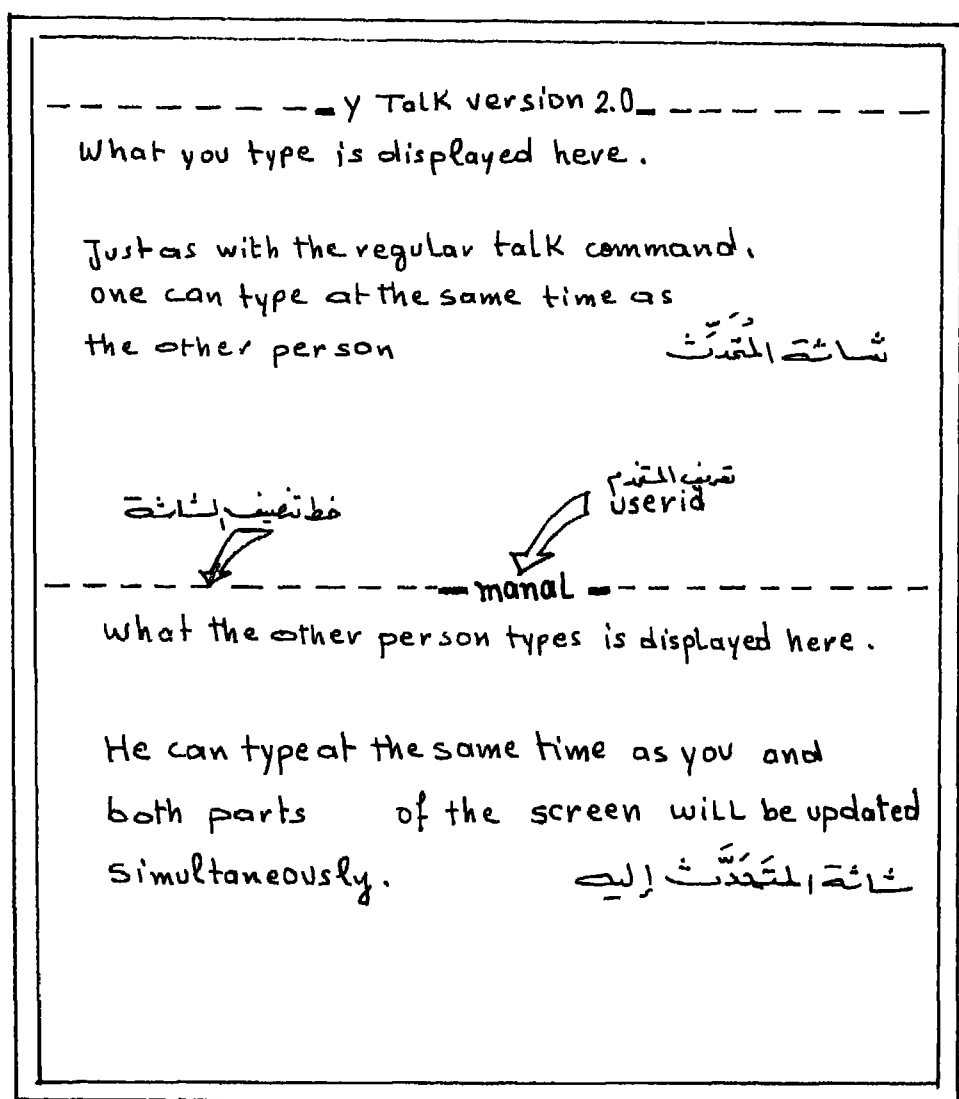 - - - - - - - - Y Talk version 2.0 - - - - - - - -
What you type is displayed here.
Just as with the regular talk command.
one can type at the same time as
the other person
شاشة المُتَحَدِّث
تعريف المستخدم
userid
خط تنصيف الشاشة
- - - - - - - - manal - - - - - - - -
what the other person types is displayed here.
He can type at the same time as you and
both parts of the screen will be updated
simultaneously.
شاشة المتَحَدَّث إليه